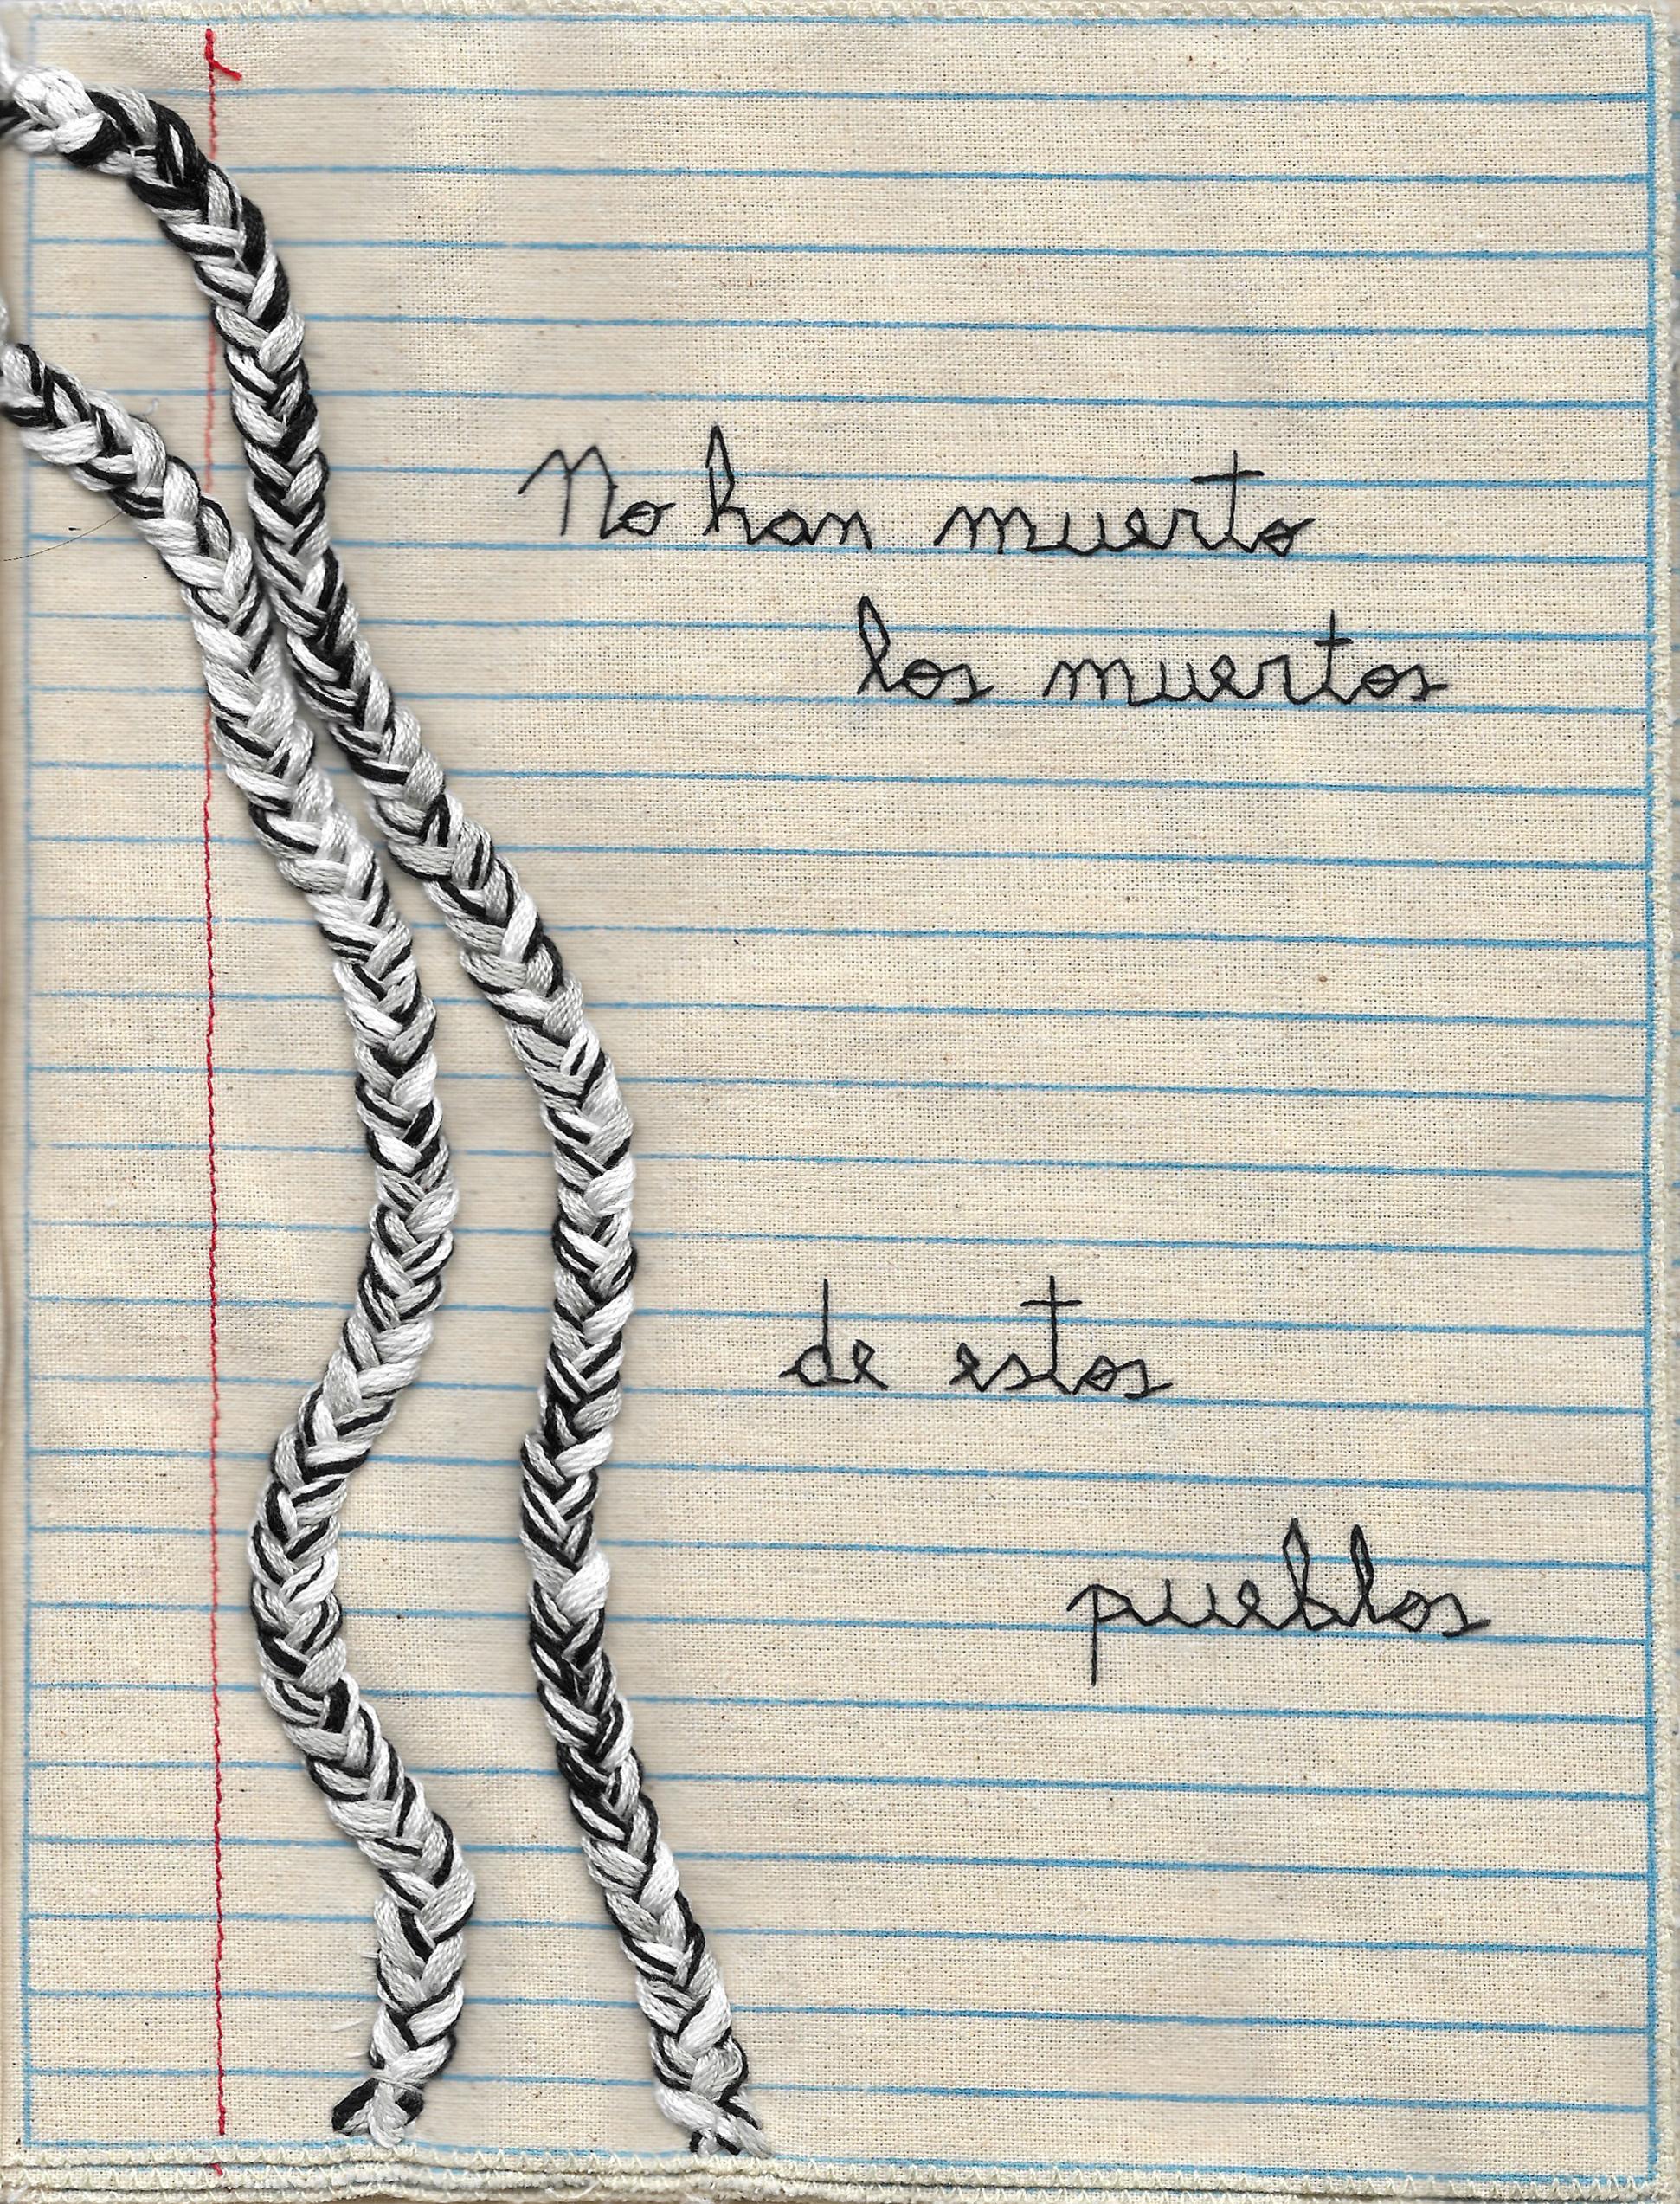 No han muerto
los muertos
de estos
pueblos